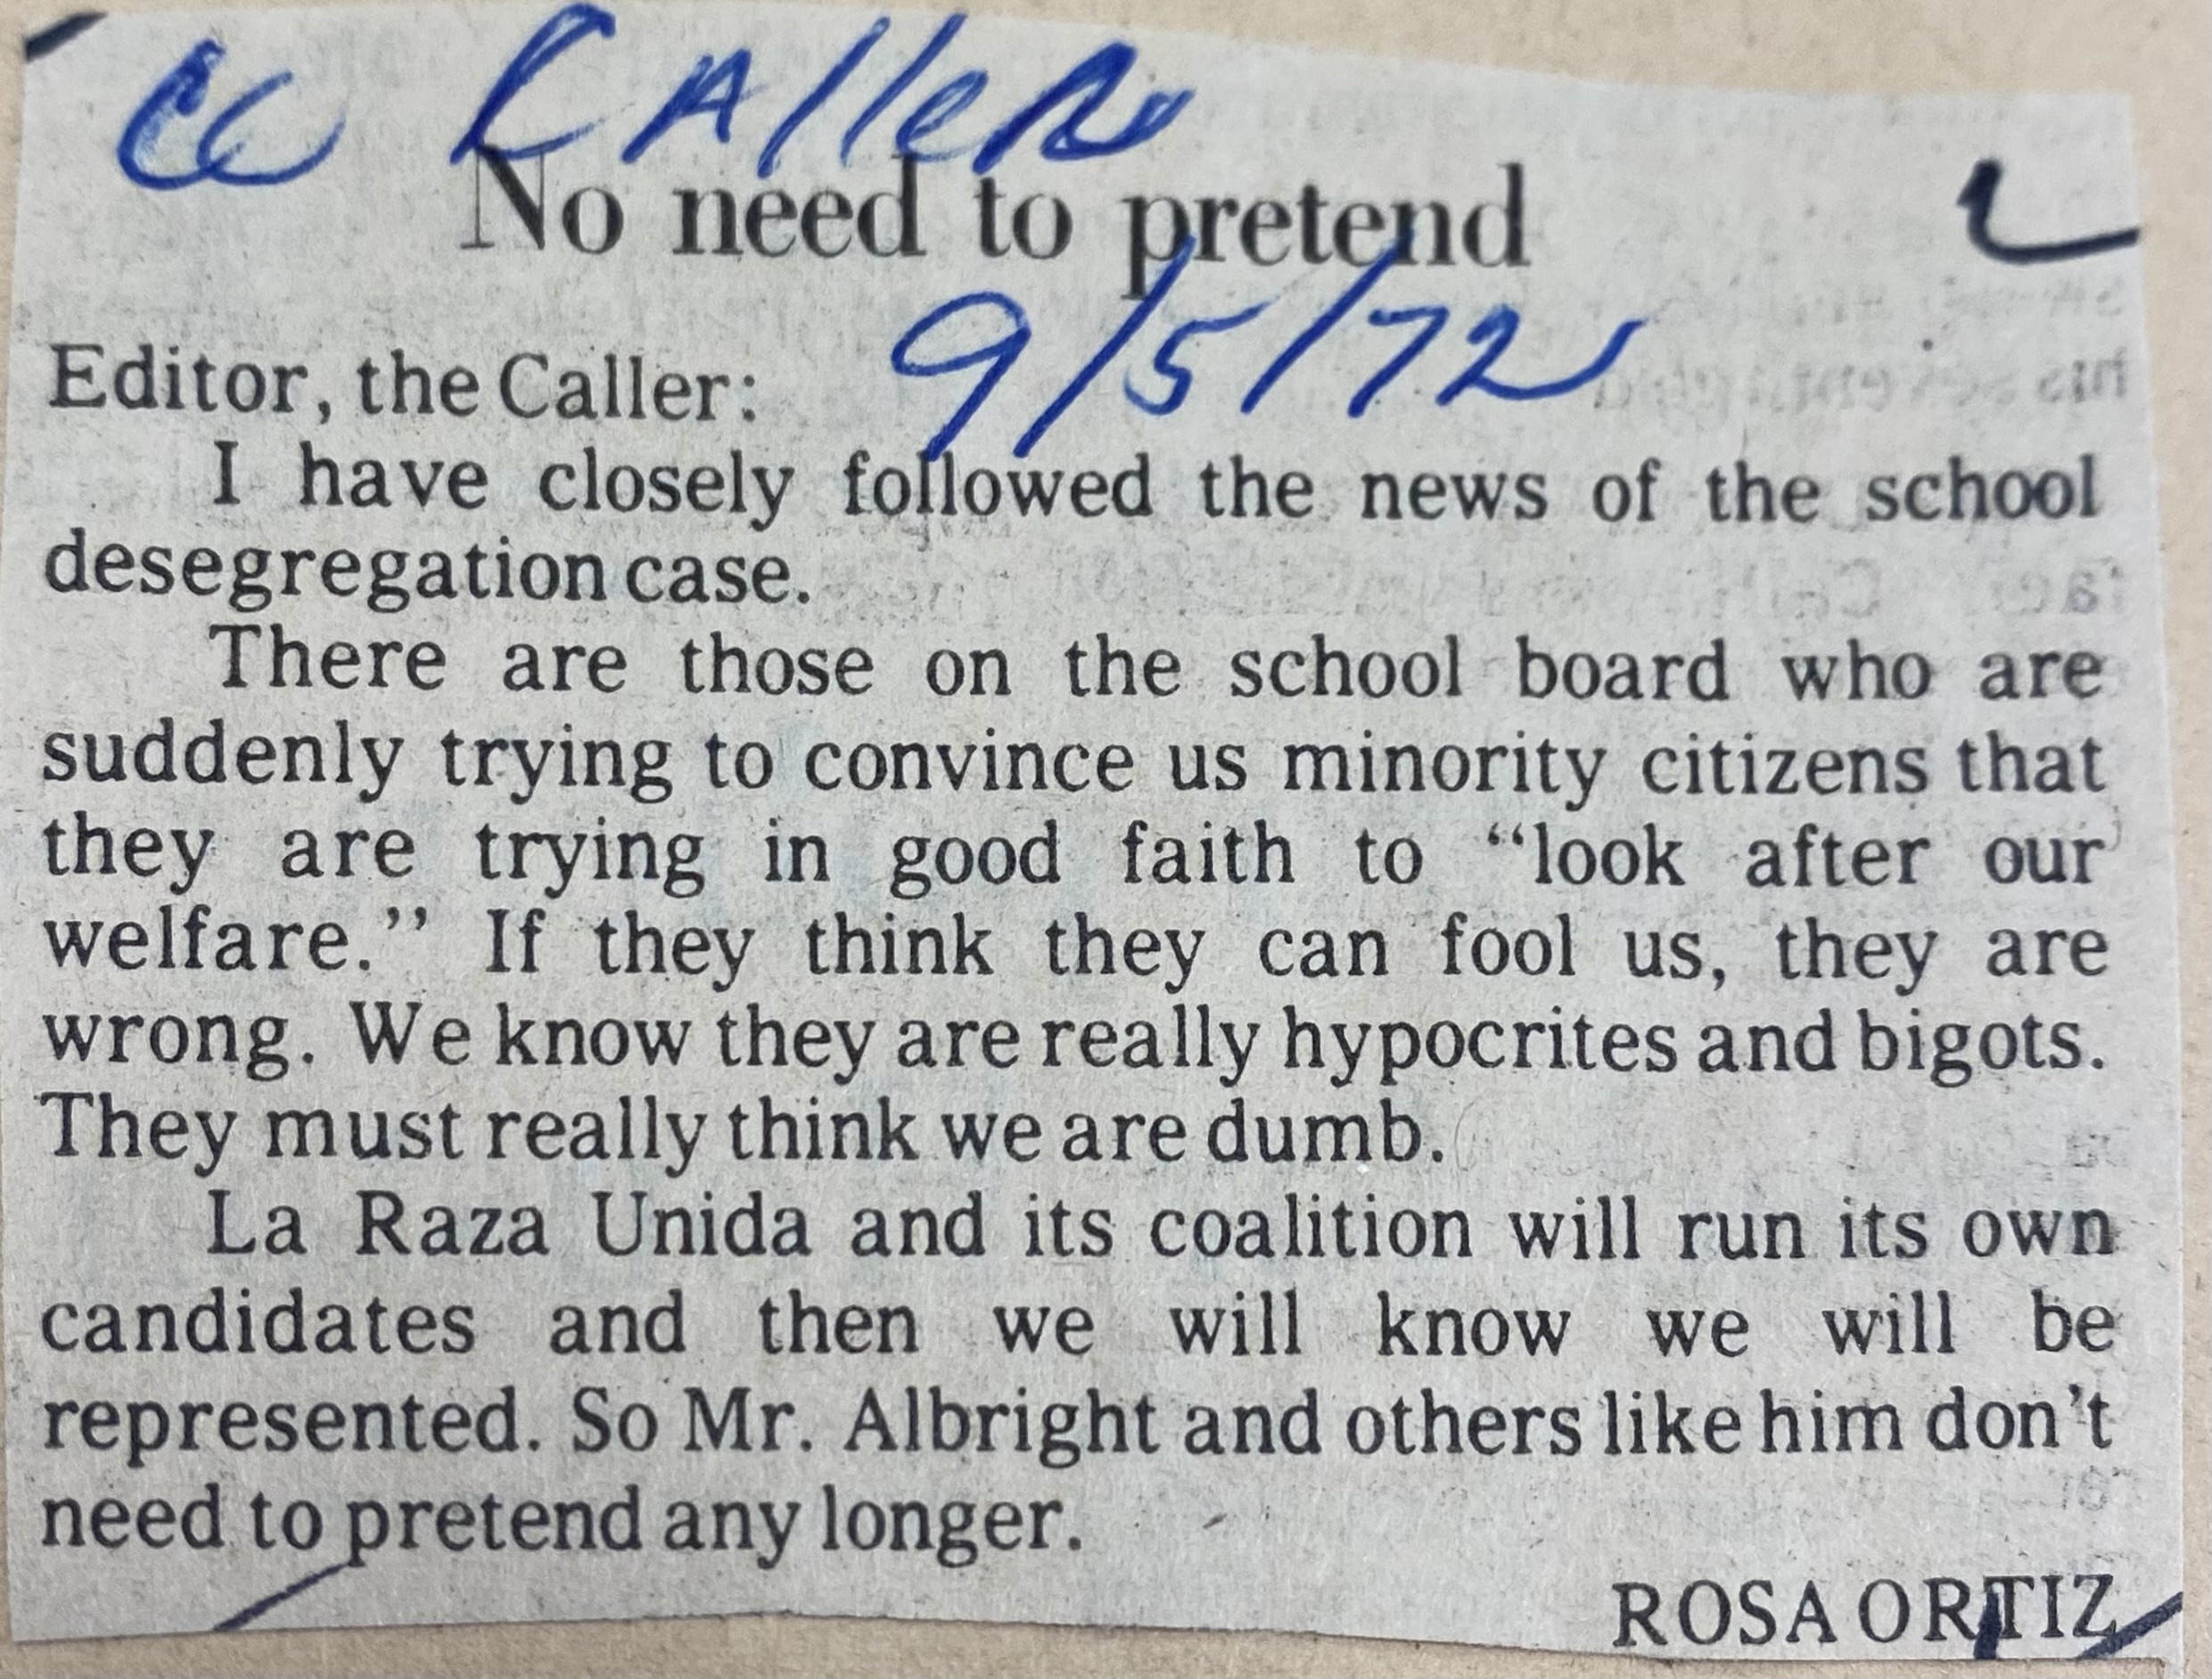 CC CAlleR
No need to pretend
9/5/72
Editor, the Caller:
I have closely followed the news of the school
desegregation case.
There are those on the school board who are
suddenly trying to convince us minority citizens that
they are trying in good faith to “look after our
welfare.” If they think they can fool us, they are
wrong. We know they are really hypocrites and bigots.
They must really think we are dumb.
La Raza Unida and its coalition will run its own
candidates and then we will know we will be
represented. So Mr. Albright and others like him don’t
need to pretend any longer.
ROSA ORTIZ